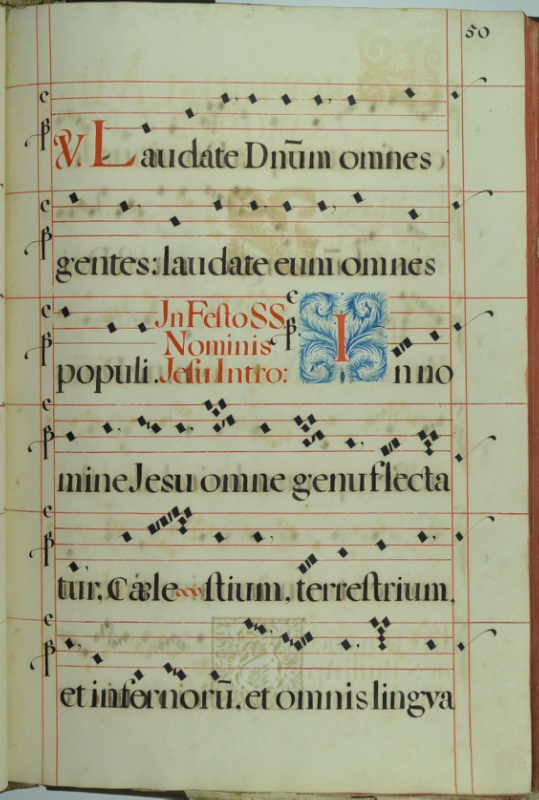 50
V. Laudate Dnūm omnes
gentes: laudate eum omnes
populi. Jn Festo SS. Nominis Jesu Intro: In no
mine Jesu omne genu flecta
tur, Cæle stium, terrestrium,
et infernorū, et omnis lingva